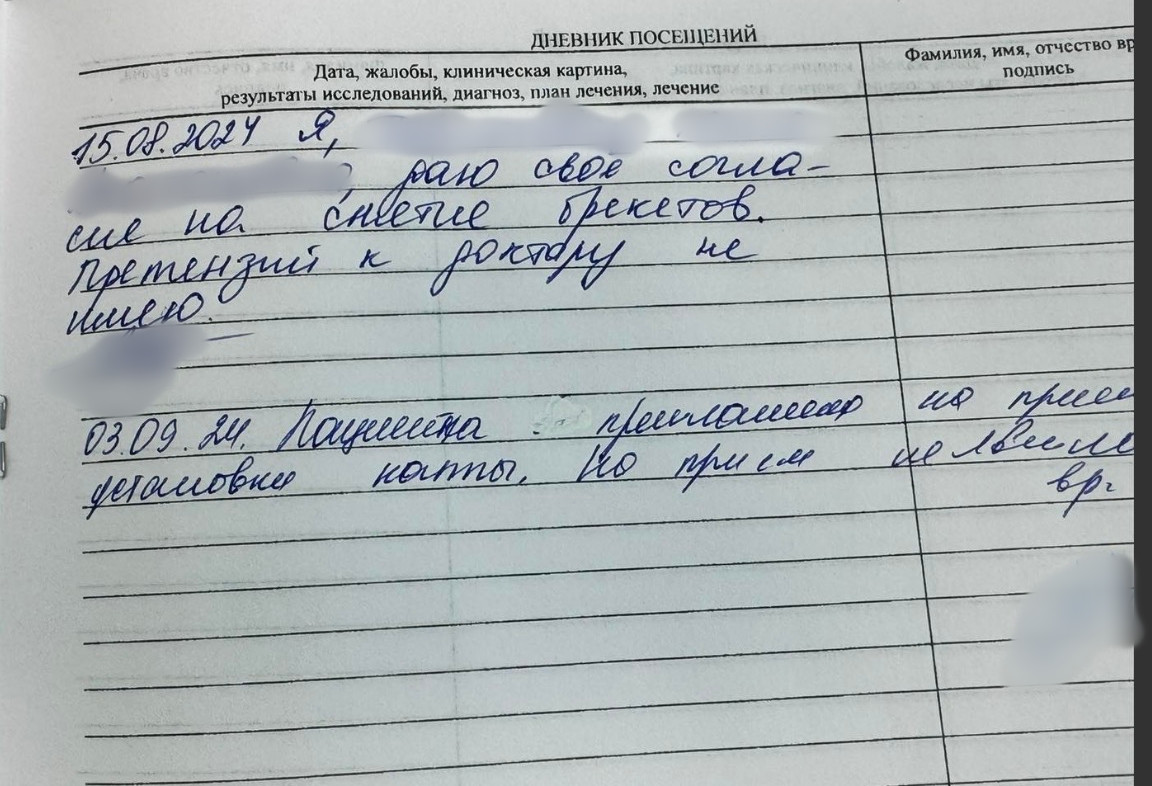 ДНЕВНИК ПОСЕЩЕНИЙ
Дата, жалобы, клиническая картина,
результаты исследований, диагноз, план лечения, лечение
Фамилия, имя, отчество вр
подпись
15.08.2024 Я,
, даю свое согла-
сие на снятие брекетов.
Претензий к доктору не
имею.
03.09.24. Пациентка приглашена на прием
установки каппы. На прием не явила
вр.